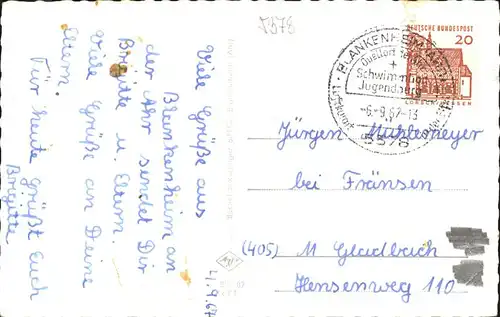 5378
Viele Grüße aus
Blankenheim an
der Ahr sendet Dir
Brigitte u. Eltern.
Viele Grüße an Deine
Eltern.
Für heute grüßt Euch
Brigitte
4.9.67
DEUTSCHE BUNDESPOST
20
BLANKENHEIM
+
Schwimmbad
Jugendherberge
-6.-9.67-13
5378
Luftkurort
Jürgen Muhlemeyer
bei Fränsen
(405) M Gladbach
Hensenweg 110